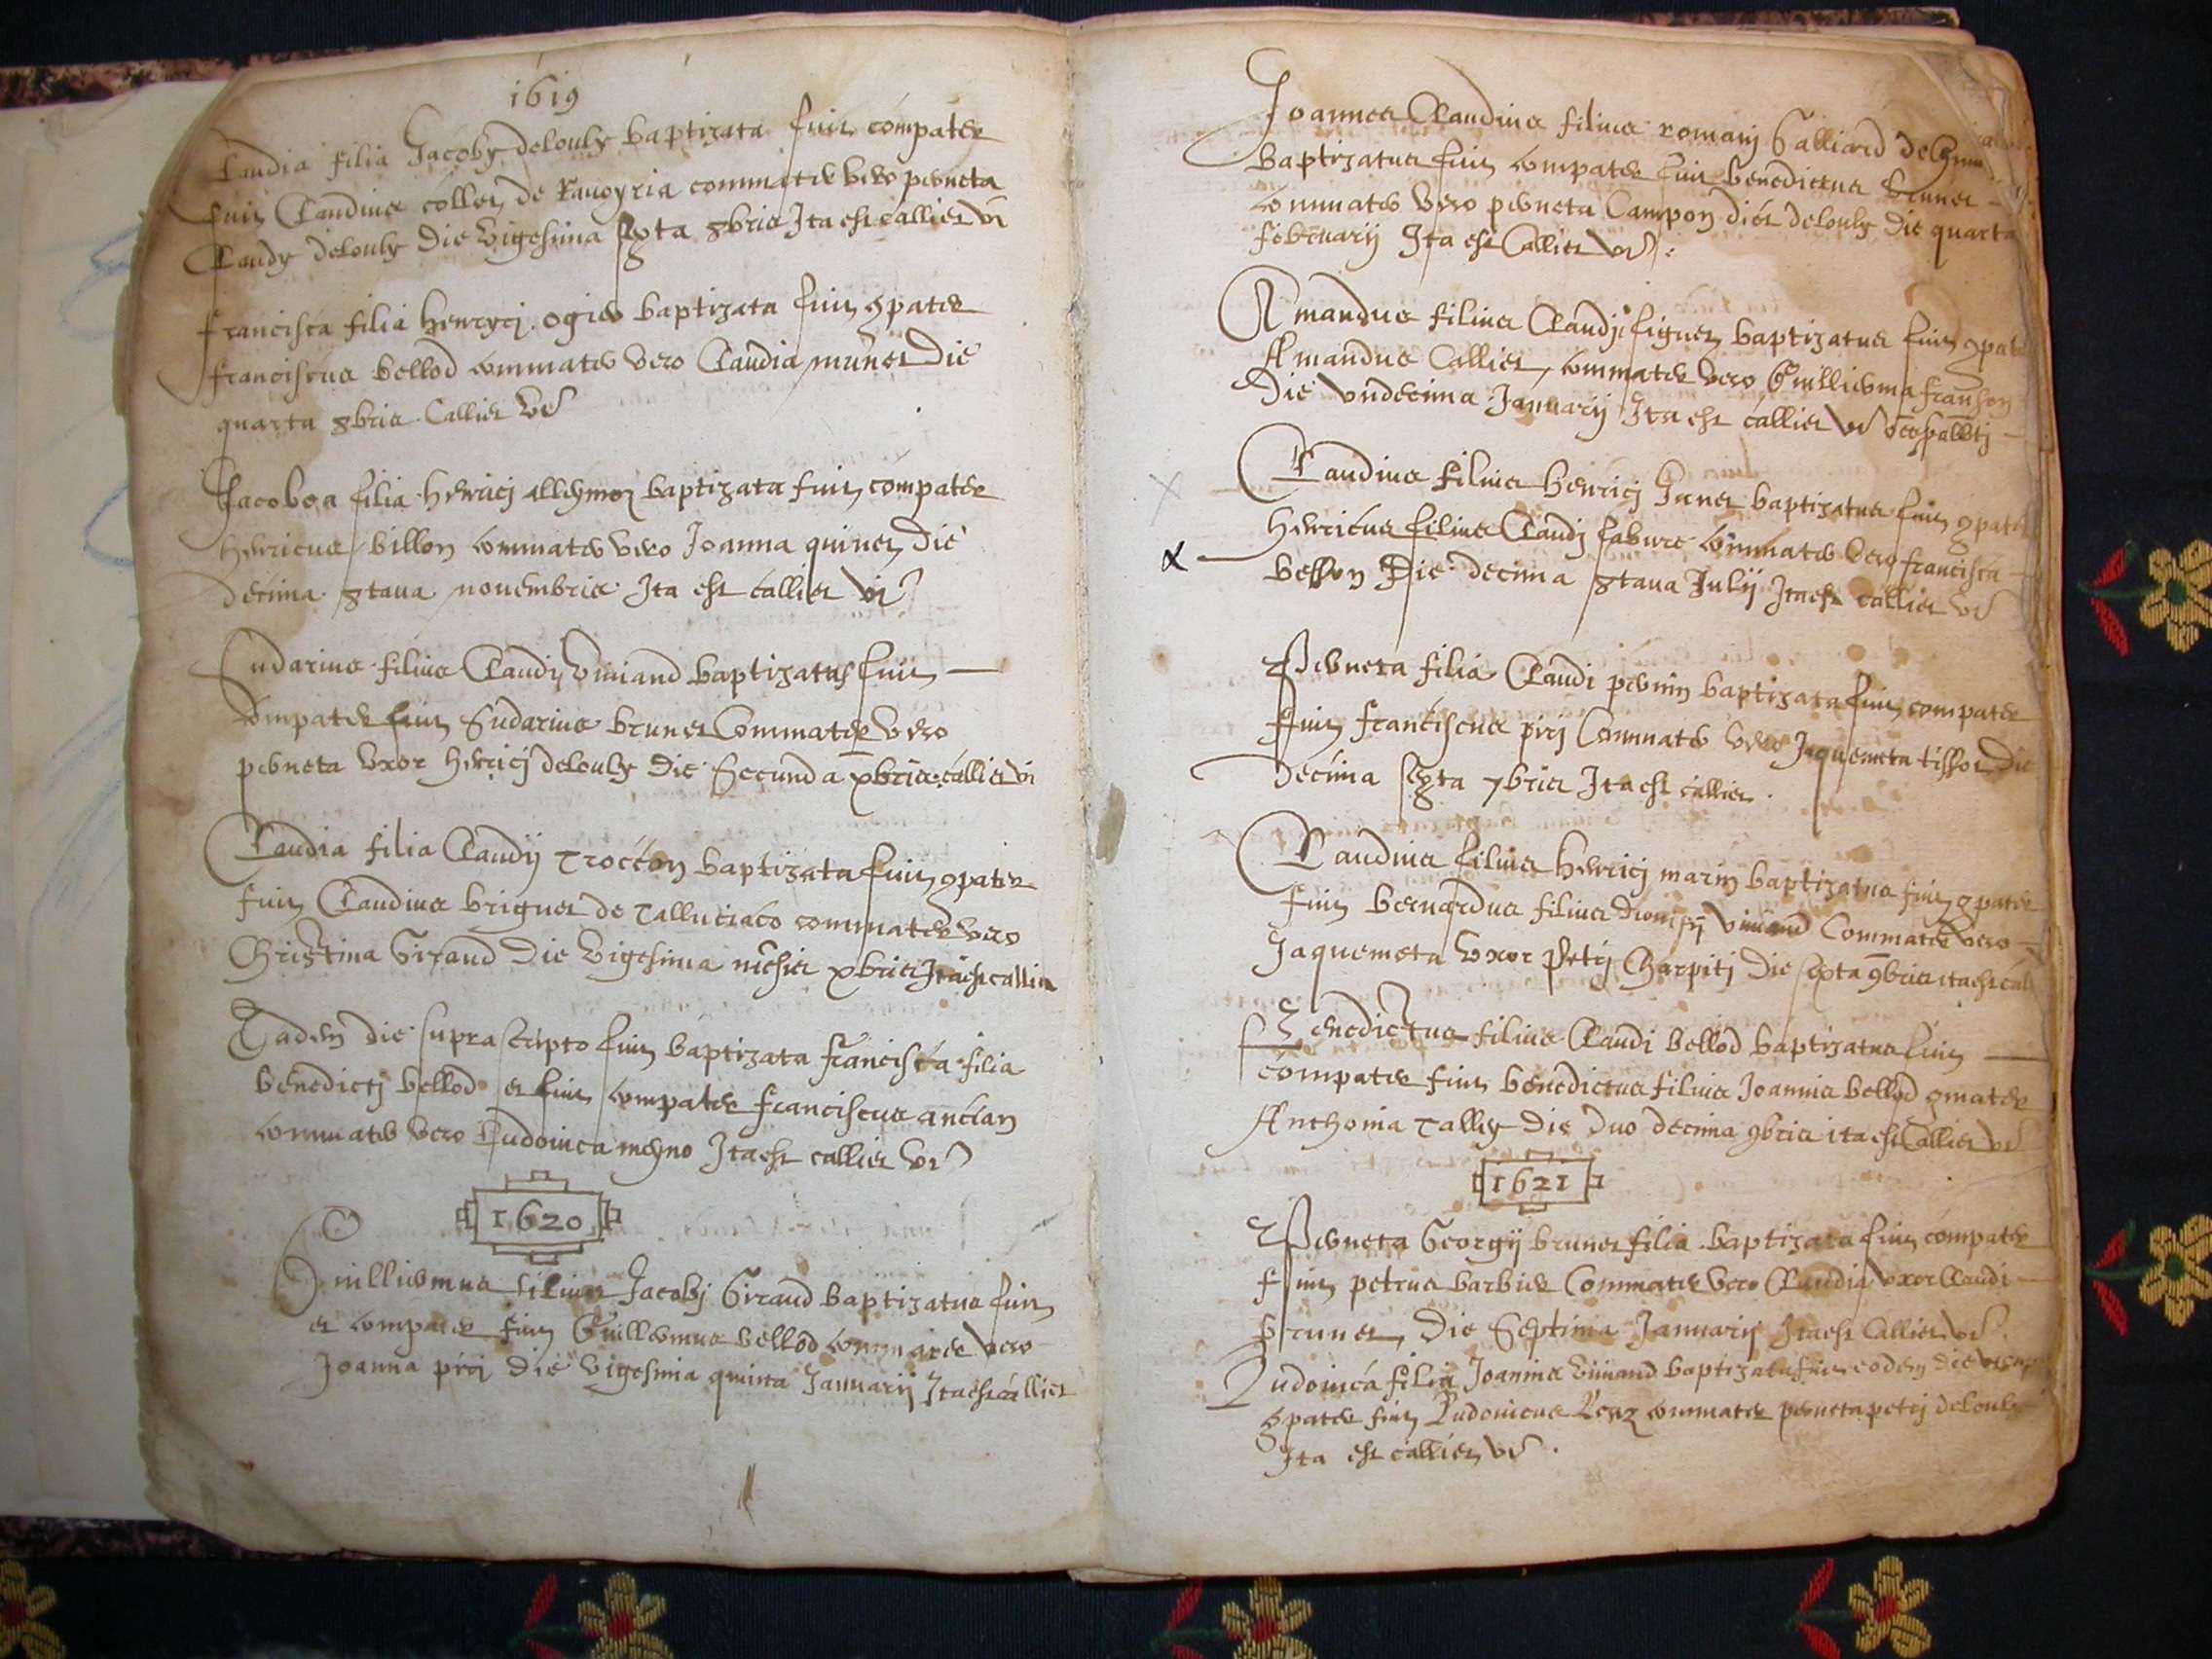 1619
Claudia filia Jacoby delouly baptizata fuit compater
fuit Claudius collet de Rauoyria commater vero perneta
Claudy delouly die vigesima sexta 8bris Ita est callier vi
francisca filia henryci ogier baptizata fuit 9pater
franciscus bellod commater vero Claudia munet die
quarta 8bris Callier vi
Jacoboa filia henrici baptizata fuit compater
henricus billon commater vero Joanna quinet die
decima 8taua nouembris Ita est callier vi
Sudarius filius Claudy viuiand baptizatus fuit —
Compater fuit Sudarius brunet Commater vero
perneta vxor henricj delouly die Secunda xbris callier vi
Claudia filia Claudij Trocton baptizata fuit 9pater
fuit Claudius briguet de Talluciaco commater vero
Christina Giraud die vigesima mēsis xbris Ita est callier
Eadem die suprascripto fuit baptizata francisca filia
benedictj bellod et fuit compater franciscus anclan
commater vero Ludouica meyno Ita est callier vi
1620
Guilliermus filius Jacobj Giraud baptizatus fuit
et compater fuit Guillermus bellod commater vero
Joanna prij die vigesima quinta Januarij Ita est callier
Joannes Claudius filius romanj Galliard de
baptizatus fuit compater fuit benedictus brunet —
commater vero perneta Campon dict delouly die quarta
februarij Ita est Callier vi
Amandus filius Claudji figuet baptizatus fuit 9pater
Amandus Callier, commater vero Guillierma franson
Die vndecima Januarij Ita est callier vi
Claudius filius henricj Janet baptizatus fuit 9pater
henricus filius Claudj fabure commater vero francisca —
besson Die decima 8taua Julij Ita est callier vi
Perneta filia Claudi pernin baptizata fuit compater
fuit franciscus prij Commater vero Jaquemeta tissot die
decima sexta 7bris Ita est callier.
Claudius filius henricj marin baptizatus fuit 9pater
fuit bernardus filius dionisij viuiand Commater vero —
Jaquemeta vxor Petrj Charpitj die sexta 9bris ita est call
Benedictus filius Claudi bellod baptizatus fuit —
compater fuit benedictus filius Joannis bellod 9mater
Anthonia Tally die duo decima 9bris ita est Callier vi
1621
Perneta Georgij brunet filia baptizata fuit compater
fuit petrus barbier Commater vero Claudia vxor Claudi —
brunet, die Septima Januarij Ita est Callier vi
Ludouica filia Joannis viuiand baptizata fuit eodem die
9pater fuit Ludouicus Reuz commater perneta petrj delouly
Ita est callier vi.